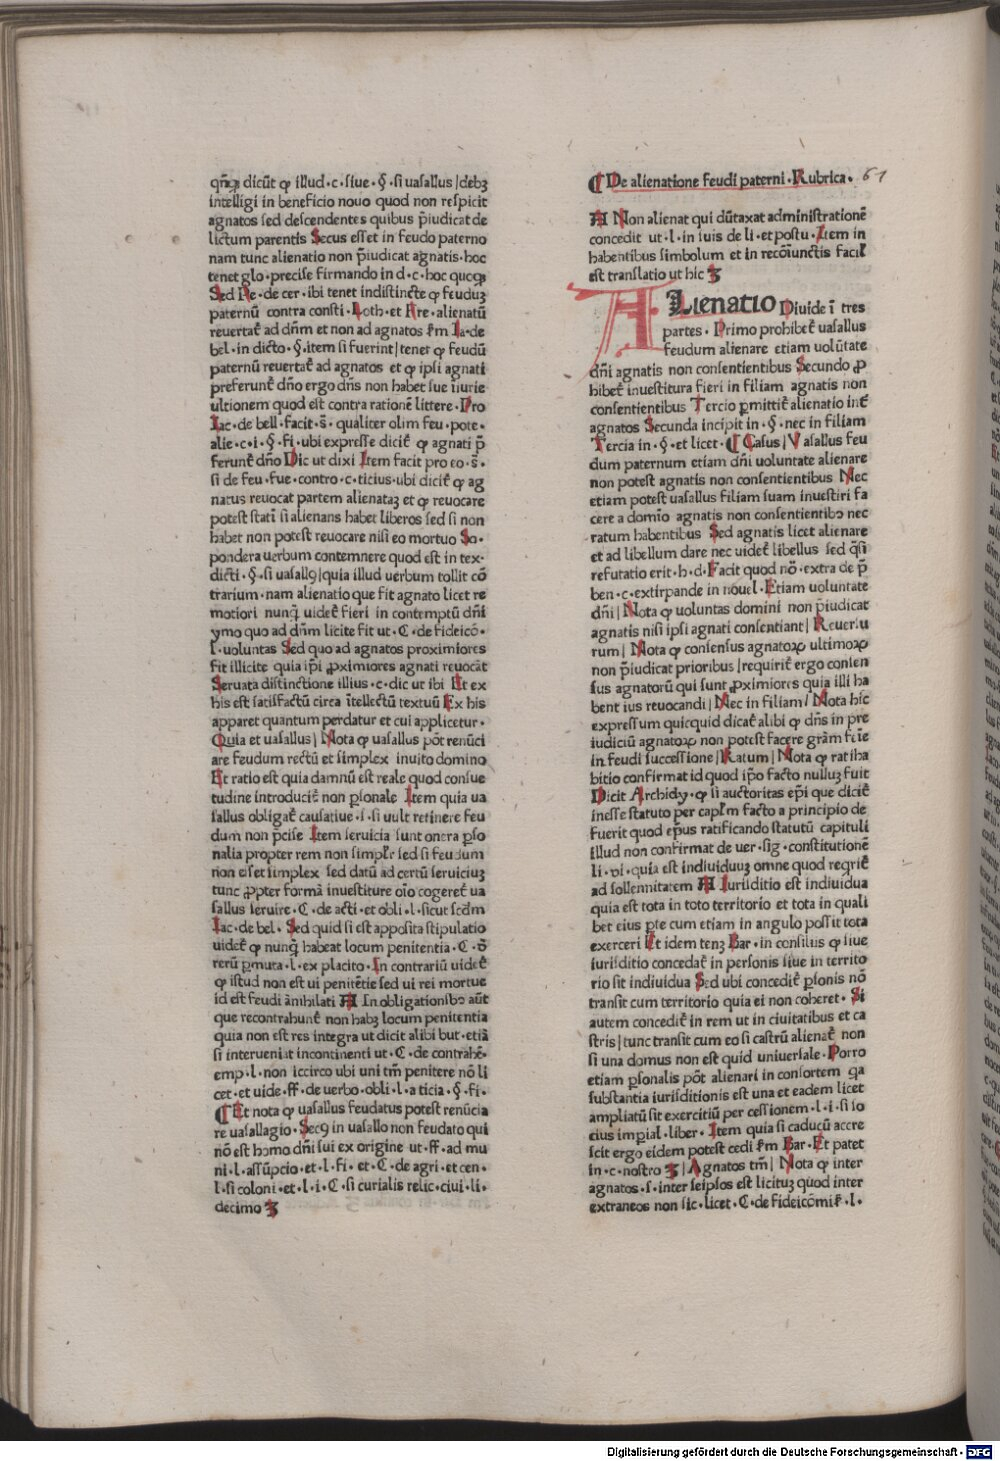 qñꝙ dicūt ꝙ illud·c·siue·§·si uasallus|debꝫ
intelligi in beneficio nouo quod non respicit
agnatos sed descendentes quibus p̄iudicat de
lictum parentis Secus esset in feudo paterno
nam tunc alienatio non p̄iudicat agnatis·hoc
tenet glo·precise firmando in d·c·hoc quoqꝫ
Sed Re·de cer·ibi tenet indistincte ꝙ feuduꝫ
paternū contra consti·Loth·et Fre·alienatū
reuertat̄ ad dn̄m et non ad agnatos s̄m Ia·de
bel·in dicto·§·item si fuerint|tenet ꝙ feudū
paternū reuertat̄ ad agnatos et ꝙ ipsi agnati
preferunt̄ dn̄o ergo dn̄s non habet sue iniurie
ultionem quod est contra rationē littere·Pro
Iac·de bell·facit·s̄·qualiter olim feu·pote·
alie·c·i·§·fi·ubi expresse dicit̄ ꝙ agnati p̄
ferunt̄ dn̄o Dic ut dixi Item facit pro eo·s̄·
si de feu·fue·contro·c·ticius·ubi dicit̄ ꝙ ag
natus reuocat partem alienataꝫ et ꝙ reuocare
potest statī si alienans habet liberos sed si non
habet non potest reuocare nisi eo mortuo So·
pondera uerbum contemnere quod est in tex·
dicti·§·si uasallꝰ|quia illud uerbum tollit cō
trarium·nam alienatio que fit agnato licet re
motiori nunqꝫ uidet̄ fieri in contemptū dn̄i
ymo quo ad dn̄m licite fit ut·C·de fideicō·
l·uoluntas Sed quo ad agnatos proximiores
fit illicite quia ip̄i ꝓximiores agnati reuocāt
Seruata distinctione illius·c·dic ut ibi Et ex
his est satisfactū circa ītellectū textuū Ex his
apparet quantum perdatur et cui applicetur·
Quia et uasallus| Nota ꝙ uasallus pōt renūci
are feudum rectū et simplex inuito domino
Et ratio est quia damnū est reale quod consue
tudine introducit̄ non ꝑsonale Item quia ua
sallus obligat̄ causatiue·s·si uult retinere feu
dum non p̄cise Item seruicia sunt onera ꝑso
nalia propter rem non simplr̄ sed si feudum
non esset simplex sed datū ad certū seruiciuꝫ
tunc ꝓpter formā inuestiture oīo cogeret̄ ua
sallus seruire·C·de acti·et obli·l·sicut scd̄m
Iac·de bel·Sed quid si est apposita stipulatio
uidet̄ ꝙ nunqꝫ habeat locum penitentia·C·ð
rerū ꝑmuta·l·ex placito·In contrariū uidet̄
ꝙ istud non est ui penitētie sed ui rei mortue
id est feudi ānihilati A In obligationibꝰ aūt
que recontrahunt̄ non habꝫ locum penitentia
quia non est res integra ut dicit alibi but·etiā
si interueniāt incontinenti ut·C·de contrahē·
emp·l·non iccirco ubi uni tm̄ penitere nō li
cet·et uide·ff·de uerbo·obli·l·a ticia·§·fi·
¶ Et nota ꝙ uasallus feudatus potest renūcia
re uasallagio·Secꝰ in uasallo non feudato qui
nō est homo dn̄i sui ex origine ut·ff·ad mu
ni·l·assūpcio·et·l·fi·et·C·de agri·et cen·
l·si coloni·et·l·i·C·si curialis relic·ciui·li·
decimo ꝫ
¶ De alienatione feudi paterni·Rubrica· 61
A Non alienat qui dūtaxat administrationē
concedit ut·l·in iuis de li·et postu·Item in
habentibus simbolum et in recōiunctis facil̄
est translatio ut hic ꝫ
ALienatio Diuide ī tres
partes·Primo prohibet̄ uasallus
feudum alienare etiam uolūtate
dn̄i agnatis non consentientibus Secundo ꝓ
hibet̄ inuestitura fieri in filiam agnatis non
consentientibus Tercio ꝑmittit̄ alienatio int̄
agnatos Secunda incipit in·§·nec in filiam
Tercia in·§·et licet·¶ Casus| Vasallus feu
dum paternum etiam dn̄i uoluntate alienare
non potest agnatis non consentientibus Nec
etiam potest uasallus filiam suam inuestiri fa
cere a domīo agnatis non consentientibꝰ nec
ratum habentibus Sed agnatis licet alienare
et ad libellum dare nec uidet̄ libellus sed q̄si
refutatio erit·h·d·Facit quod nō·extra de p̄
ben·c·extirpande in nouel·Etiam uoluntate
dn̄i| Nota ꝙ uoluntas domini non p̄iudicat
agnatis nisi ipsi agnati consentiant| Reuersu
rum| Nota ꝙ consensus agnatoꝝ ultimoꝝ
non p̄iudicat prioribus|requirit̄ ergo consen
sus agnatorū qui sunt ꝓximiores quia illi ha
bent ius reuocandi| Nec in filiam/ Nota hic
expressum quicquid dicat alibi ꝙ dn̄s in pre
iudiciū agnatoꝝ non potest facere grām feīe
in feudi successione| Ratum| Nota ꝙ ratiha
bitio confirmat id quod ip̄o facto nulluꝫ fuit
Dicit Archidy·ꝙ si auctoritas ep̄i que dicit̄
inesse statuto per capl̄m facto a principio de
fuerit quod ep̄us ratificando statutū capituli
illud non confirmat de uer·sig·constitutionē
li·vi·quia est indiuiduuꝫ omne quod reqrit̄
ad sollennitatem A Iurisditio est indiuidua
quia est tota in toto territorio et tota in quali
bet eius pte cum etiam in angulo possit tota
exerceri Et idem tenꝫ Bar·in consilus ꝙ siue
iurisditio concedat̄ in personis siue in territo
rio sit indiuidua Sed ubi concedit̄ ꝑsonis nō
transit cum territorio quia ei non coheret·Si
autem concedit̄ in rem ut in ciuitatibus et ca
stris|tunc transit cum eo si castrū alienat̄ non
si una domus non est quid uniuersale·Porro
etiam ꝑsonalis pōt alienari in consortem qa
substantia iurisditionis est una et eadem licet
ampliatū sit exercitiū per cessionem·l·i·si so
cius impial·liber·Item quia si caducū accre
scit ergo eidem potest cedi s̄m Bar·Et patet
in·c·nostro ꝫ| Agnatos tm̄| Nota ꝙ inter
agnatos·s·inter seipsos est licituꝫ quod inter
extraneos non sic·licet·C·de fideicōmis̄·l·
Digitalisierung gefördert durch die Deutsche Forschungsgemeinschaft - DFG